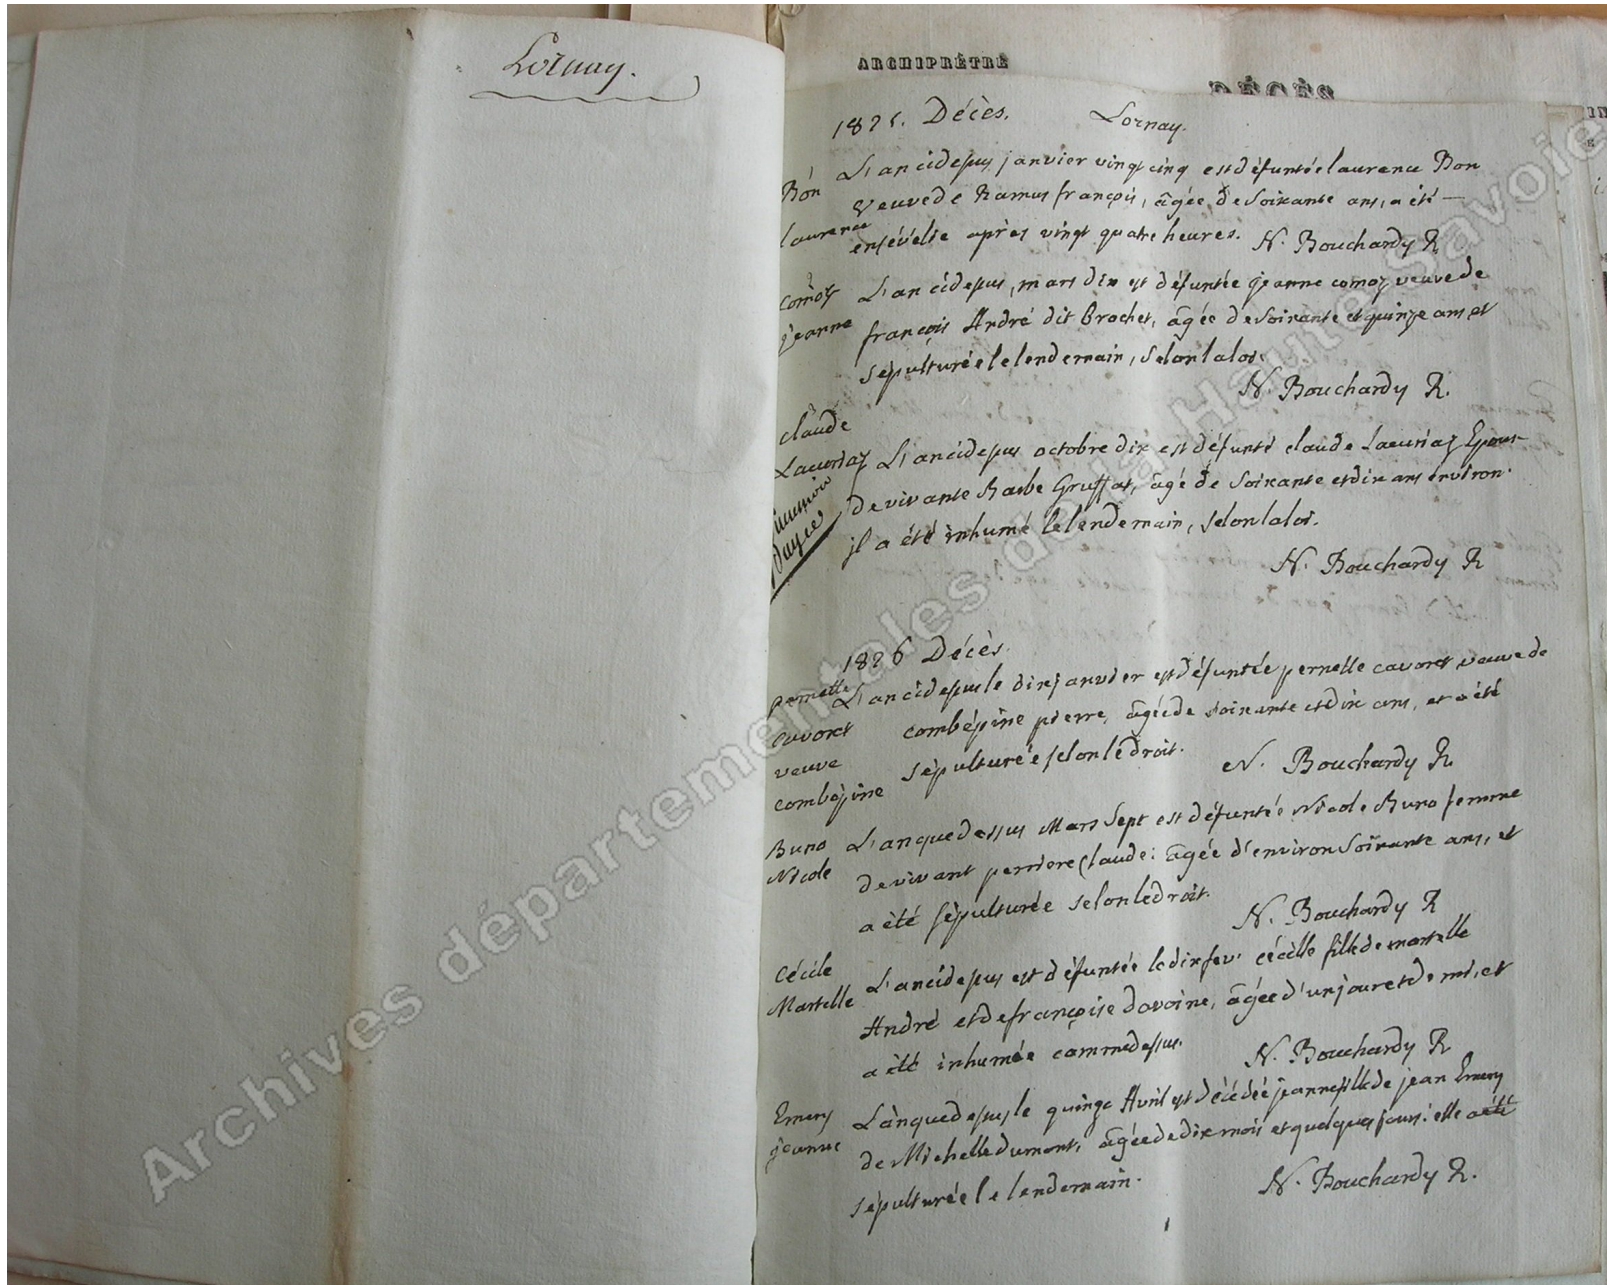 Lornay.
ARCHIPRÊTRÉ
DÉCÈS
1825. Décès. Lornay.
Bón
laurence
L'an cidessus, janvier vingt cinq est défuntée laurence Bon
veuve de Ramus françois, âgée de soixante ans, a été —
ensévélie après vingt quatre heures. N. Bouchardy R
comoz
jeanne
L'an cidessus, mars dix est défuntée jeanne comoz veuve de
françois André dit Brochet, âgée de soixante et quinze ans et
sépulturée le lendemain, selon la loi.
N. Bouchardy R.
claude
Lacuriaz
payée
L'an cidessus octobre dix est défunté claude Lacuriaz Epoux
de vivante Barbe Gruffat, âgé de soixante et dix ans environ.
il a été inhumé le lendemain, selon la loi.
N. Bouchardy R
1826 Décès.
pernette
cavoret
veuve
combépine
L'an cidessus le dix janvier est défuntée pernette cavoret veuve de
combépine pierre, âgée de soixante et dix ans, et a été
sépulturée selon le droit.
N. Bouchardy R.
Buno
Nicole
L'an que dessus Mars sept est défuntée Nicole Buno femme
de vivant perriere Claude: âgée d'environ soixante ans, et
a été sépulturée selon le droit.
N. Bouchardy R
Cécile
Martelle
L'an cidessus est défuntée le dix fev. cécille fille de martelle
André et de françoise davoine, âgée d'un jour et demi, et
a été inhumée comme dessus.
N. Bouchardy R
Emery
jeanne
L'an que dessus le quinze Avril est décédée jeanne fille de jean Emery
de Michelle dumont, âgée de dix mois et quelques jours: elle a été
sépulturée le lendemain.
N. Bouchardy R.
Archives départementales de la Haute Savoie